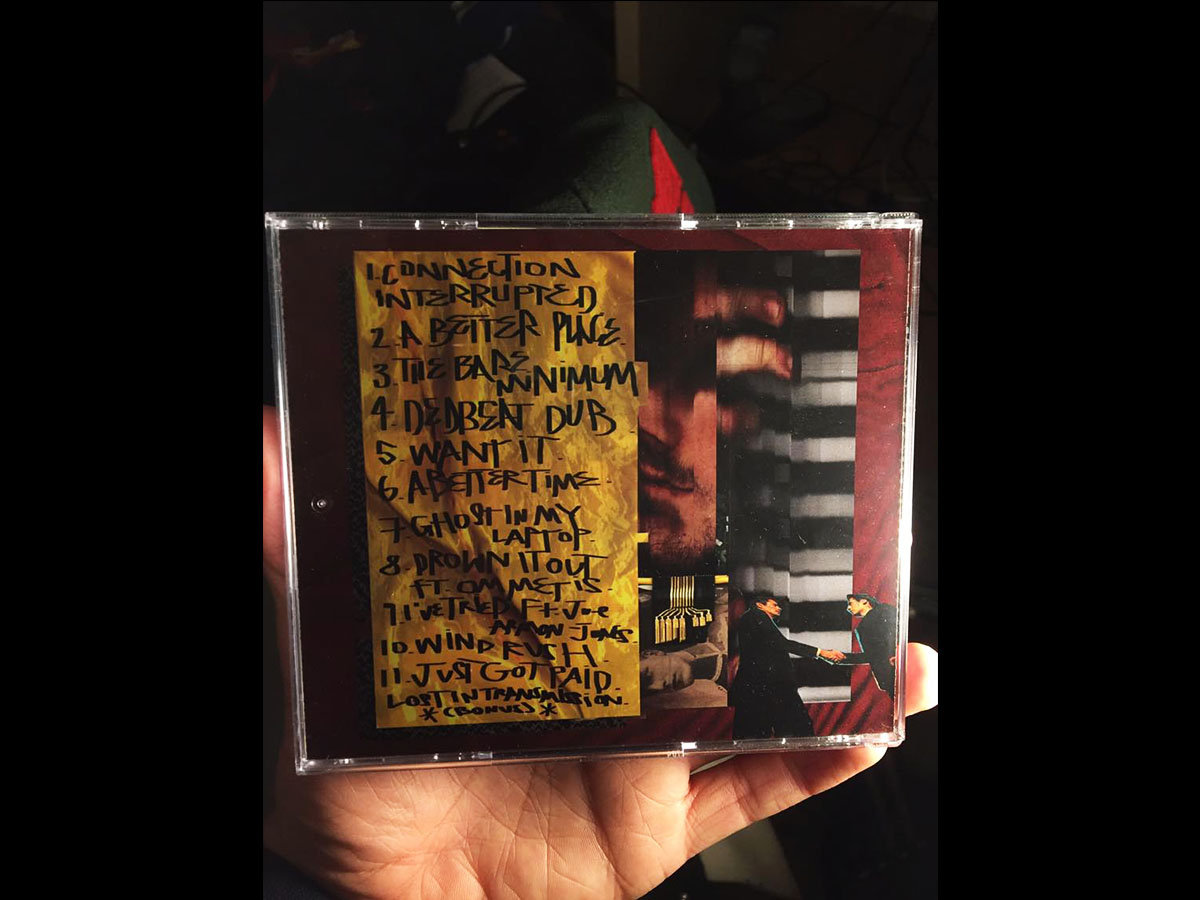 1. CONNECTION
INTERRUPTED
2. A BETTER PLACE.
3. THE BARE
MINIMUM
4. DEDBEAT DUB.
5. WANT IT.
6. A BETTER TIME.
7. GHOST IN MY
LAPTOP.
8. DROWN IT OUT
FT. OM METIS.
9 I'VE TRIED Ft Joe
ARMON JONES.
10. WINDRUSH.
11. JUST GOT PAID.
LOST IN TRANSMISSION.
* (BONUS) *